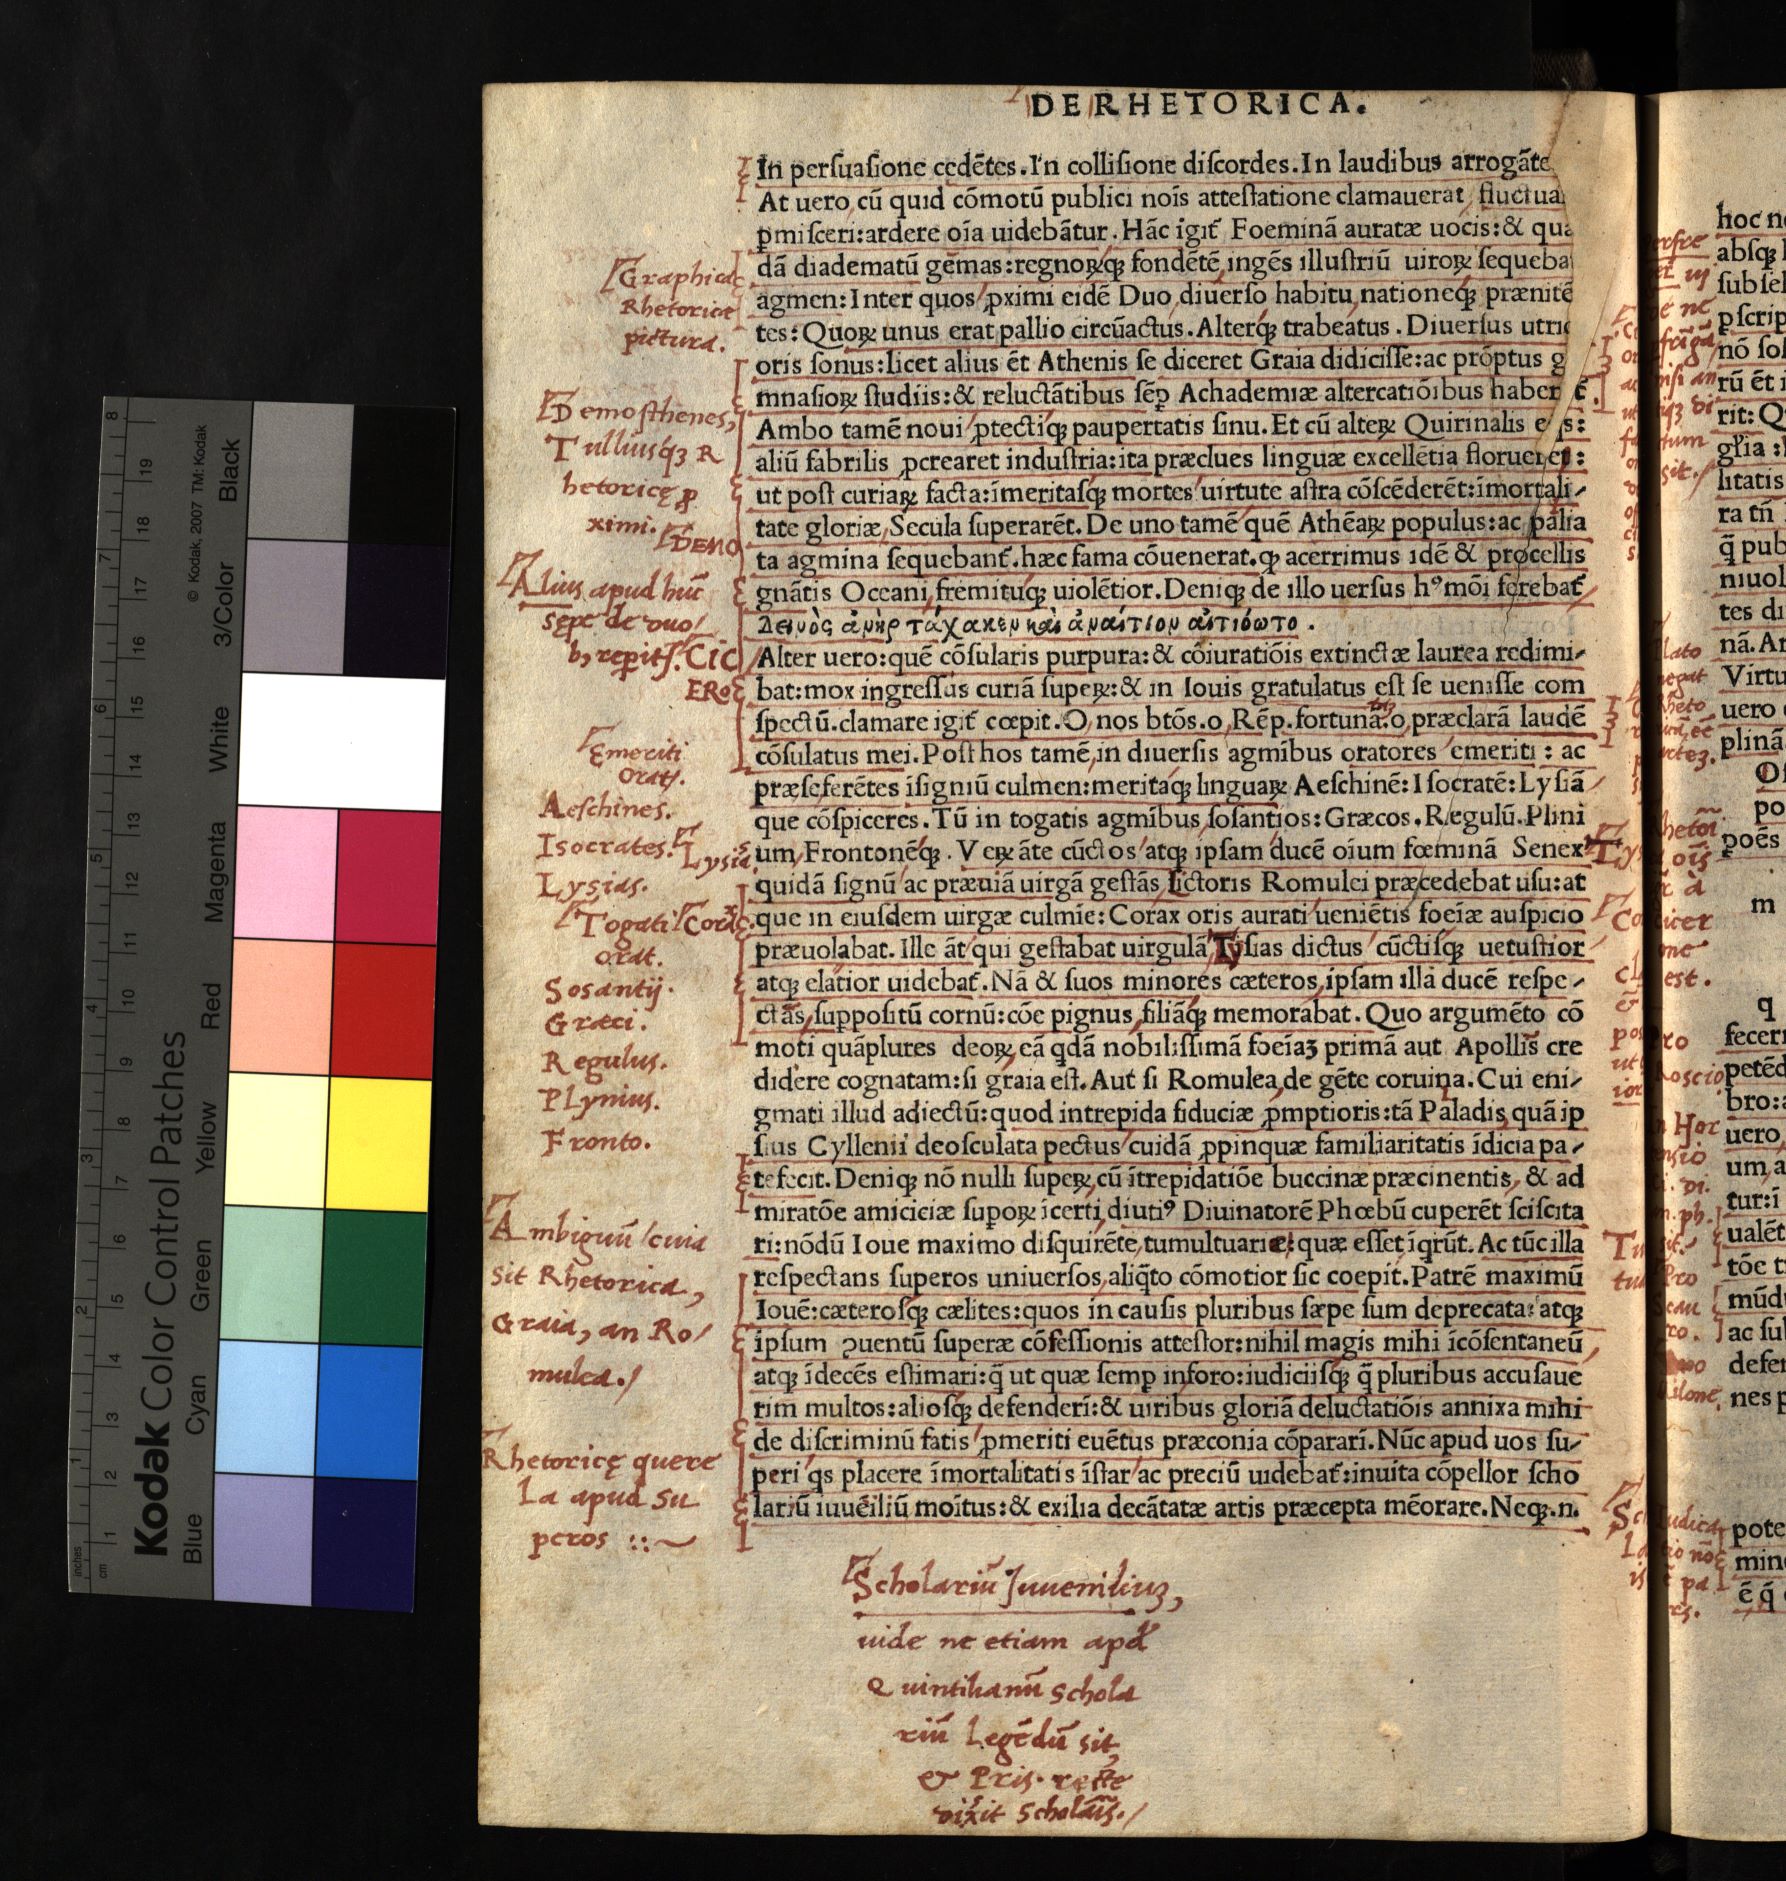 DE RHETORICA.
In perſuaſione cedẽtes. In colliſione diſcordes. In laudibus arrogãte
At uero cũ quid cõmotũ publici noĩs atteſtatione clamauerat, fluctua
ꝑmiſceri: ardere oĩa uidebãtur. Hãc igit̃ Foeminã auratæ uocis: & qua
dã diadematũ gẽmas: regnoꝝqꝫ fondẽtẽ ingẽs illuſtriũ uiroꝝ ſequeba
agmen: Inter quos ꝓximi eidẽ Duo diuerſo habitu nationeqꝫ prænitẽ
tes: Quoꝝ unus erat pallio circũactus. Alterqꝫ trabeatus. Diuerſus utriꝗ
oris ſonus: licet alius ẽt Athenis ſe diceret Graia didiciſſe: ac prõptus g
mnaſioꝝ ſtudiis: & reluctãtibus ſẽꝑ Achademiæ altercatiõibus haber
Ambo tamẽ noui ꝓtectiqꝫ paupertatis ſinu. Et cũ alteꝝ Quirinalis eqs:
aliũ fabrilis ꝓcrearet induſtria: ita præclues linguæ excellẽtia floruerẽt:
ut poſt curiaꝝ facta: ĩmeritaſqꝫ mortes uirtute aſtra cõſcẽderẽt: ĩmortali-
tate gloriæ, Secula ſuperarẽt. De uno tamẽ quẽ Athẽaꝝ populus: ac palia
ta agmina ſequebant̃. hæc fama cõuenerat. ꝙ acerrimus idẽ & procellis
gnãtis Oceani fremituqꝫ uiolẽtior. Deniqꝫ de illo uerſus hꝰ mõi ferebat̃
Δεινὸς ἀνὴρ τάχακεν καὶ ἀναίτιον αἰτιόωτο.
Alter uero: quẽ cõſularis purpura: & cõiuratiõis extinctæ laurea redimi-
bat: mox ingreſſus curiã ſupeꝝ: & in Iouis gratulatus eſt ſe ueniſſe com
ſpectũ. clamare igit̃ cœpit. O nos btõs. o Rẽp. fortunã. o præclarã laudẽ
cõſulatus mei. Poſt hos tamẽ in diuerſis agmĩbus oratores emeriti: ac
præſeferẽtes ĩſigniũ culmen: meritaqꝫ linguaꝝ Aeſchinẽ: Iſocratẽ: Lyſiã
que cõſpiceres. Tũ in togatis agmĩbus ſoſantios: Græcos. Regulũ. Plini
um, Frontonẽqꝫ. Veꝝ ãte cũctos atqꝫ ipſam ducẽ oĩum fœminã Senex
quidã ſignũ ac præuiã uirgã geſtãs, Lictoris Romulei præcedebat uſu: at
que in eiuſdem uirgæ culmĩe: Corax oris aurati ueniẽtis foeĩæ auſpicio
præuolabat. Ille ãt qui geſtabat uirgulã Tyſias dictus cũctiſqꝫ uetuſtior
atqꝫ elatior uidebat̃. Nã & ſuos minores cæteros, ipſam illã ducẽ reſpe-
ctãs, ſuppoſitũ cornũ: cõe pignus, filiãqꝫ memorabat. Quo argumẽto cõ
moti quãplures deoꝝ, eã qdã nobiliſſimã foeĩaꝫ primã aut Apollĩs cre
didere cognatam: ſi graia eſt. Aut ſi Romulea, de gẽte coruina. Cui eni-
gmati illud adiectũ: quod intrepida fiduciæ ꝓmptioris: tã Paladis, quã ip
ſius Cyllenii deoſculata pectus cuidã ꝓpinquæ familiaritatis ĩdicia pa-
tefecit. Deniqꝫ nõ nulli ſupeꝝ, cũ ĩtrepidatiõe buccinæ præcinentis, & ad
miratõe amiciciæ ſupoꝝ ĩcerti, diutiꝰ Diuinatorẽ Phœbũ cuperẽt ſciſcita
ri: nõdũ Ioue maximo diſquirẽte, tumultuariæ: quæ eſſet ĩqrũt. Ac tũc illa
reſpectans ſuperos uniuerſos, aliq̃to cõmotior ſic coepit. Patrẽ maximũ
Iouẽ: cæteroſqꝫ cælites: quos in cauſis pluribus ſæpe ſum deprecata: atqꝫ
ipſum ꝯuentũ ſuperæ cõfeſſionis atteſtor: nihil magis mihi ĩcõſentaneũ
atqꝫ ĩdecẽs eſtimari: q̃ ut quæ ſemꝑ inforo: iudiciiſqꝫ q̃ pluribus accuſaue
rim multos: alioſqꝫ defenderĩ: & uiribus gloriã deluctatiõis annixa mihi
de diſcriminũ fatis ꝓmeriti euẽtus præconia cõpararĩ. Nũc apud uos ſu-
peri qs placere ĩmortalitatis ĩſtar ac preciũ uidebat̃: inuita cõpellor ſcho
lariũ iuuẽiliũ moĩtus: & exilia decãtatæ artis præcepta mẽorare. Neqꝫ. n.
Graphica
Rhetoricæ
pictura.
Demoſthenes,
Tulliusqꝫ R
hetoricę ꝓ
ximi.
DEMO
Alius apud huc̃
sępe de duo/
bꝫ repit̃.
CIC
ERO
Emeriti
orat.
Aeſchines.
Isocrates.
Lysiã
Lysias.
Togati
Corax
orat.
Sosantij.
Græci.
Regulus.
Plynius.
Fronto.
Ambiguũ cuia
sit Rhetorica,
Graia, an Ro/
mulea./
Rhetoricę quere
la apud Su
peros
Scholariũ Iuueniliuꝫ,
uide ne etiam apd
Quintilianũ schola
riũ legẽdũ sit,
& Pris. recte
dixit scholãis./
hoc n
abſqꝫ
ſubſel
pſcrip
nõ ſol
rũ ẽt i
rit: Q
litatis
ra tñ
q̃ pub
niuol
tes di
nã. A
Virtu
uero
plinã
po
poẽs
m
q
fecer
petẽd
bro: a
uero,
um, a
tur: ĩ
ualẽt
tõe t
mũd
ac ſu
defen
nes p
pote
min
ẽ q̃
Kodak Color Control Patches
© Kodak, 2007 TM: Kodak
Blue Cyan Green Yellow Red Magenta White 3/Color Black
inches 1 2 3 4 5 6 7 8
cm 1 2 3 4 5 6 7 8 9 10 11 12 13 14 15 16 17 18 19